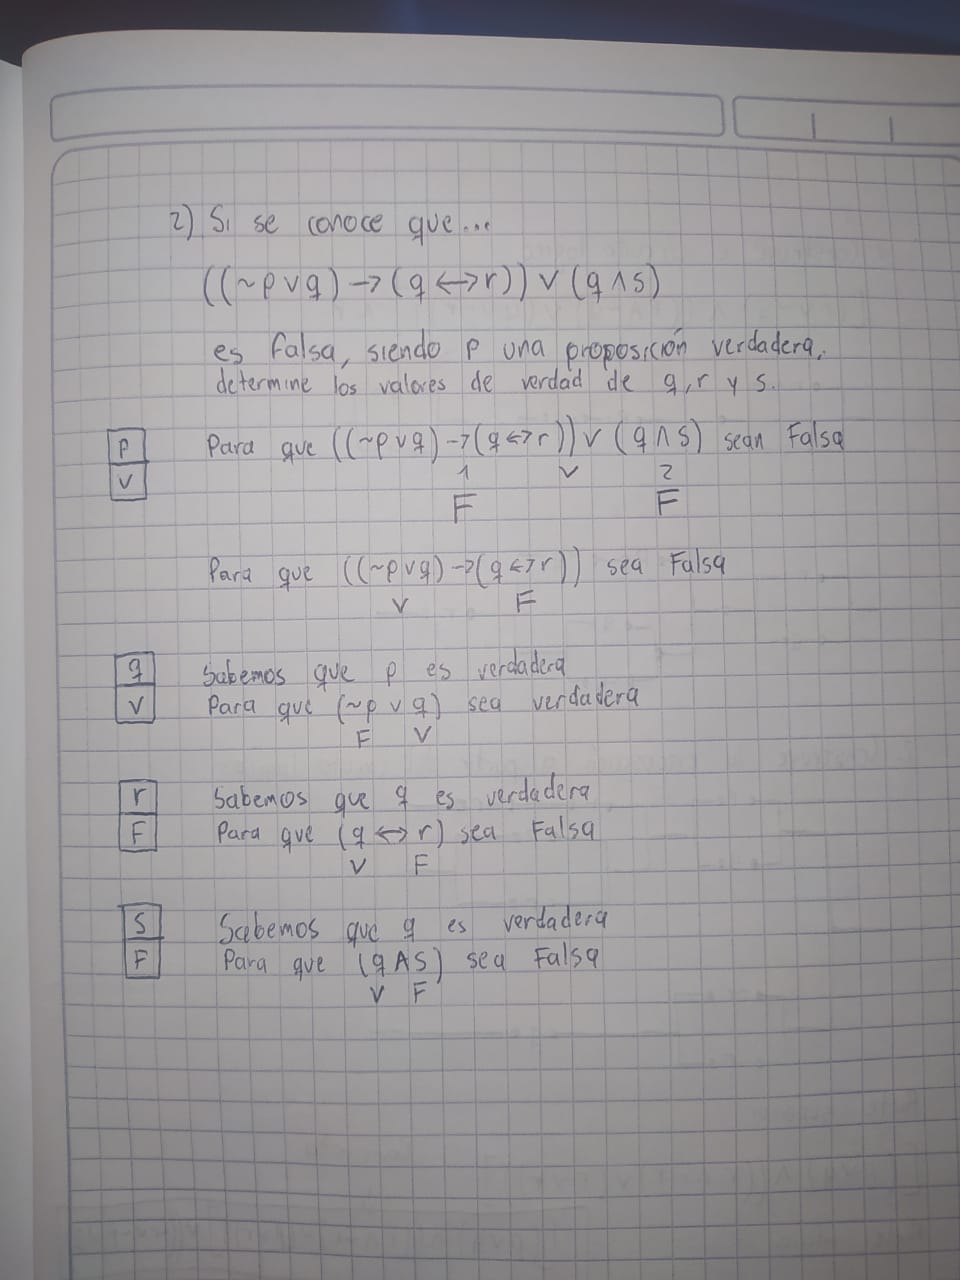 2) Si se conoce que...
((~p∨q)→(q↔r))∨(q∧s)
es falsa, siendo p una proposición verdadera,
determine los valores de verdad de q,r y s.
p Para que ((~p∨q)→(q↔r))∨(q∧s) sean Falsa
V 1 V 2
F F
Para que ((~p∨q)→(q↔r)) sea Falsa
V F
q Sabemos que p es verdadera
V Para que (~p∨q) sea verdadera
F V
r Sabemos que q es verdadera
F Para que (q↔r) sea Falsa
V F
S Sabemos que q es verdadera
F Para que (q∧S) sea Falsa
V F